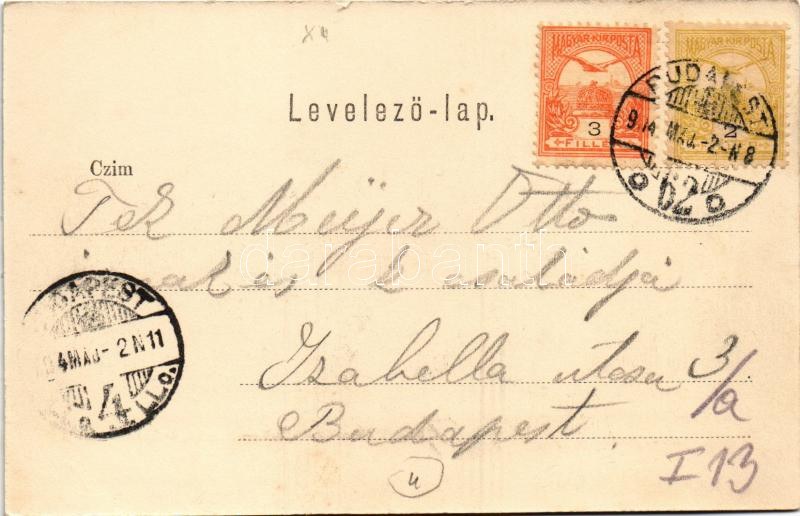 x4
MAGYAR KIR POSTA
3
FILLÉR
MAGYAR KIR POSTA
2
BUDAPEST
904 MÁJ.-2-N8
62
Levelező-lap.
Czim
Tek Meijer Otto
darabanth
úrnak és k családja
BUDAPEST
904 MÁJ-2N11
4
Izabella utcza 3/a
Budapest
I 13
4